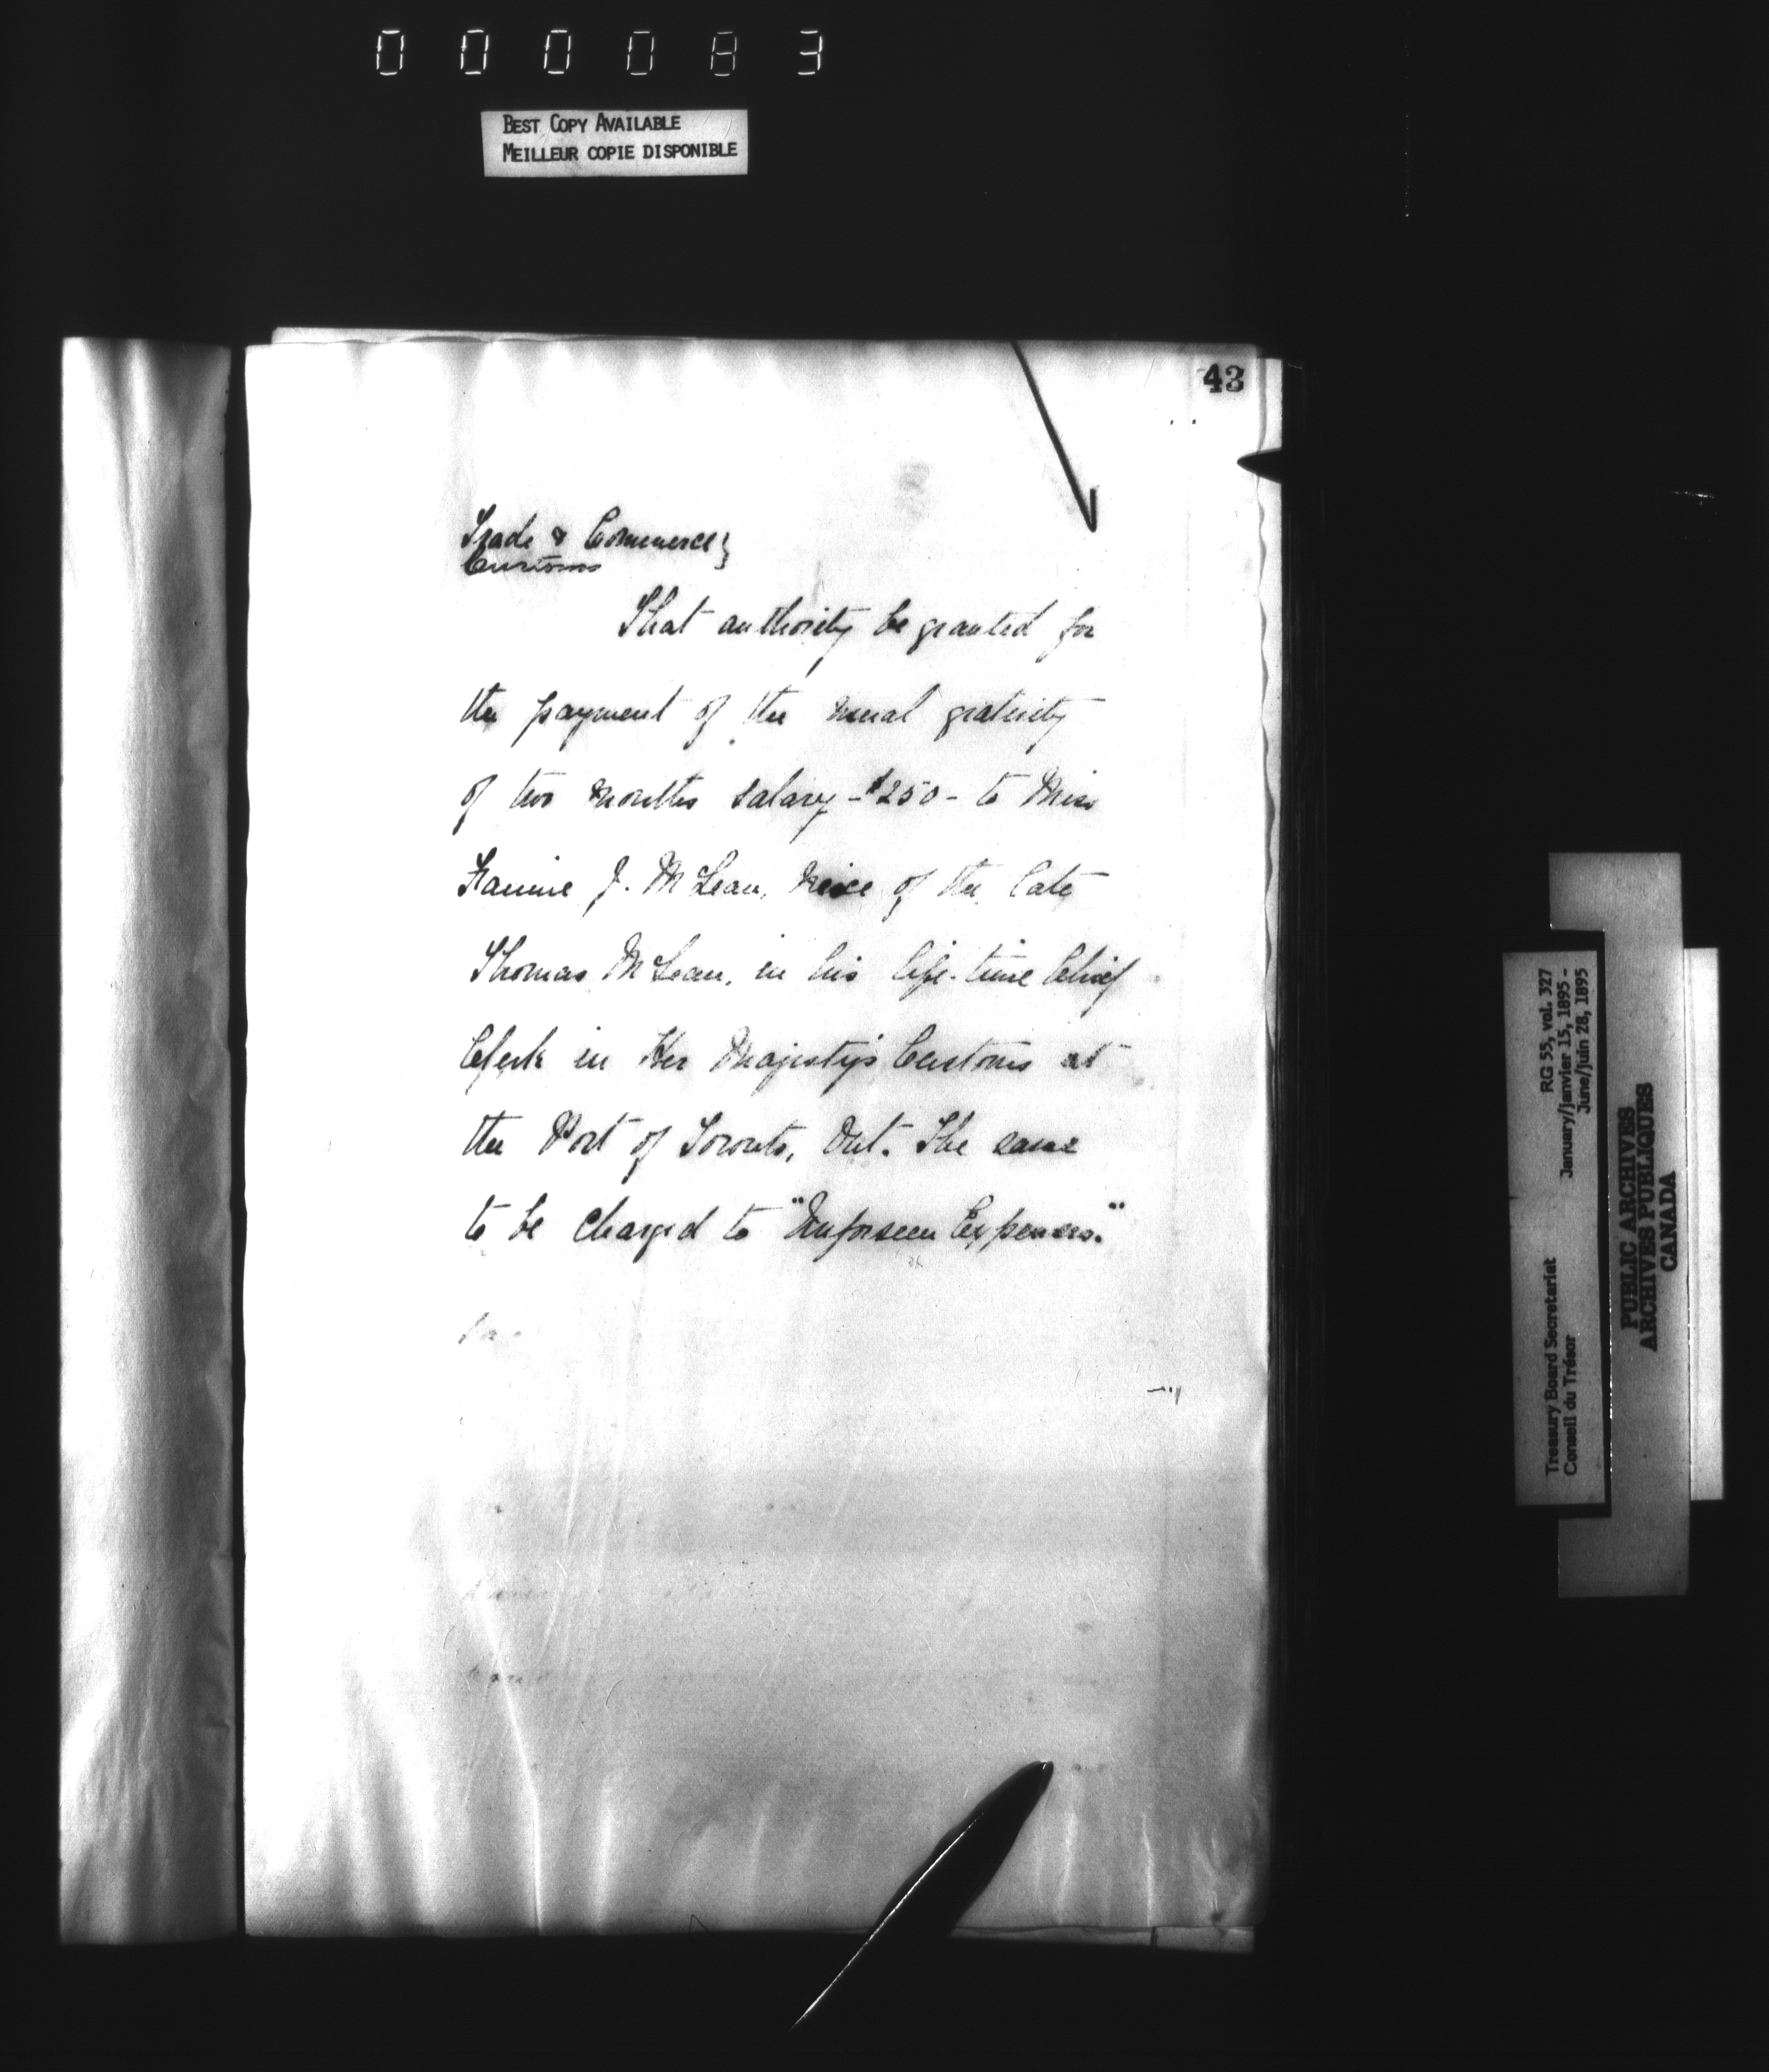 000083
BEST COPY AVAILABLE
MEILLEUR COPIE DISPONIBLE
43
Trade & Commerce}
Customs
That authority be granted for
the payment of the usual gratuity
of two months salary - $250 - to Miss
Fannie J. McLean, neice of the late
Thomas McLean, in his life-time Chief
Clerk in Her Majesty's Customs at
the Port of Toronto, Ont. The same
to be charged to "Unforseen Expenses."
RG 55, vol. 327
January/janvier 15, 1895 -
June/juin 28, 1895
Treasury Board Secretariat
Conseil du Trésor
PUBLIC ARCHIVES
ARCHIVES PUBLIQUES
CANADA